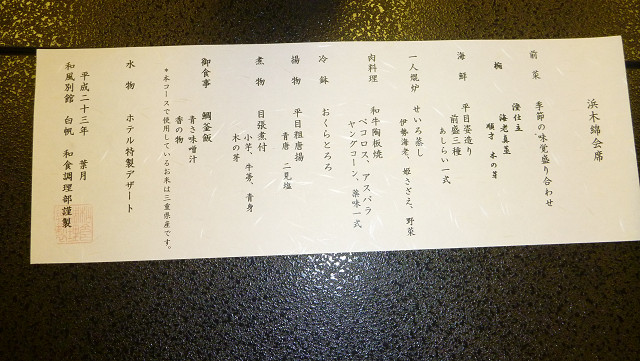 浜木綿会席
前菜　季節の味覚盛り合わせ
椀　澄仕立
海老真薯
順才　木の芽
海鮮　平目姿造り
前盛三種
あしらい一式
一人焜炉　せいろ蒸し
伊勢海老、姫さざえ、野菜
肉料理　和牛陶板焼
ペコロス、アスパラ
ヤングコーン、薬味一式
冷鉢　おくらとろろ
揚物　平目粗唐揚
青唐　二見塩
煮物　目張煮付
小芋、牛蒡、青身
木の芽
御食事　鯛釜飯
青さ味噌汁
香の物
*本コースで使用しているお米は三重県産です。
水物　ホテル特製デザート
平成二十三年　葉月
和風別館　白帆　和食調理部謹製